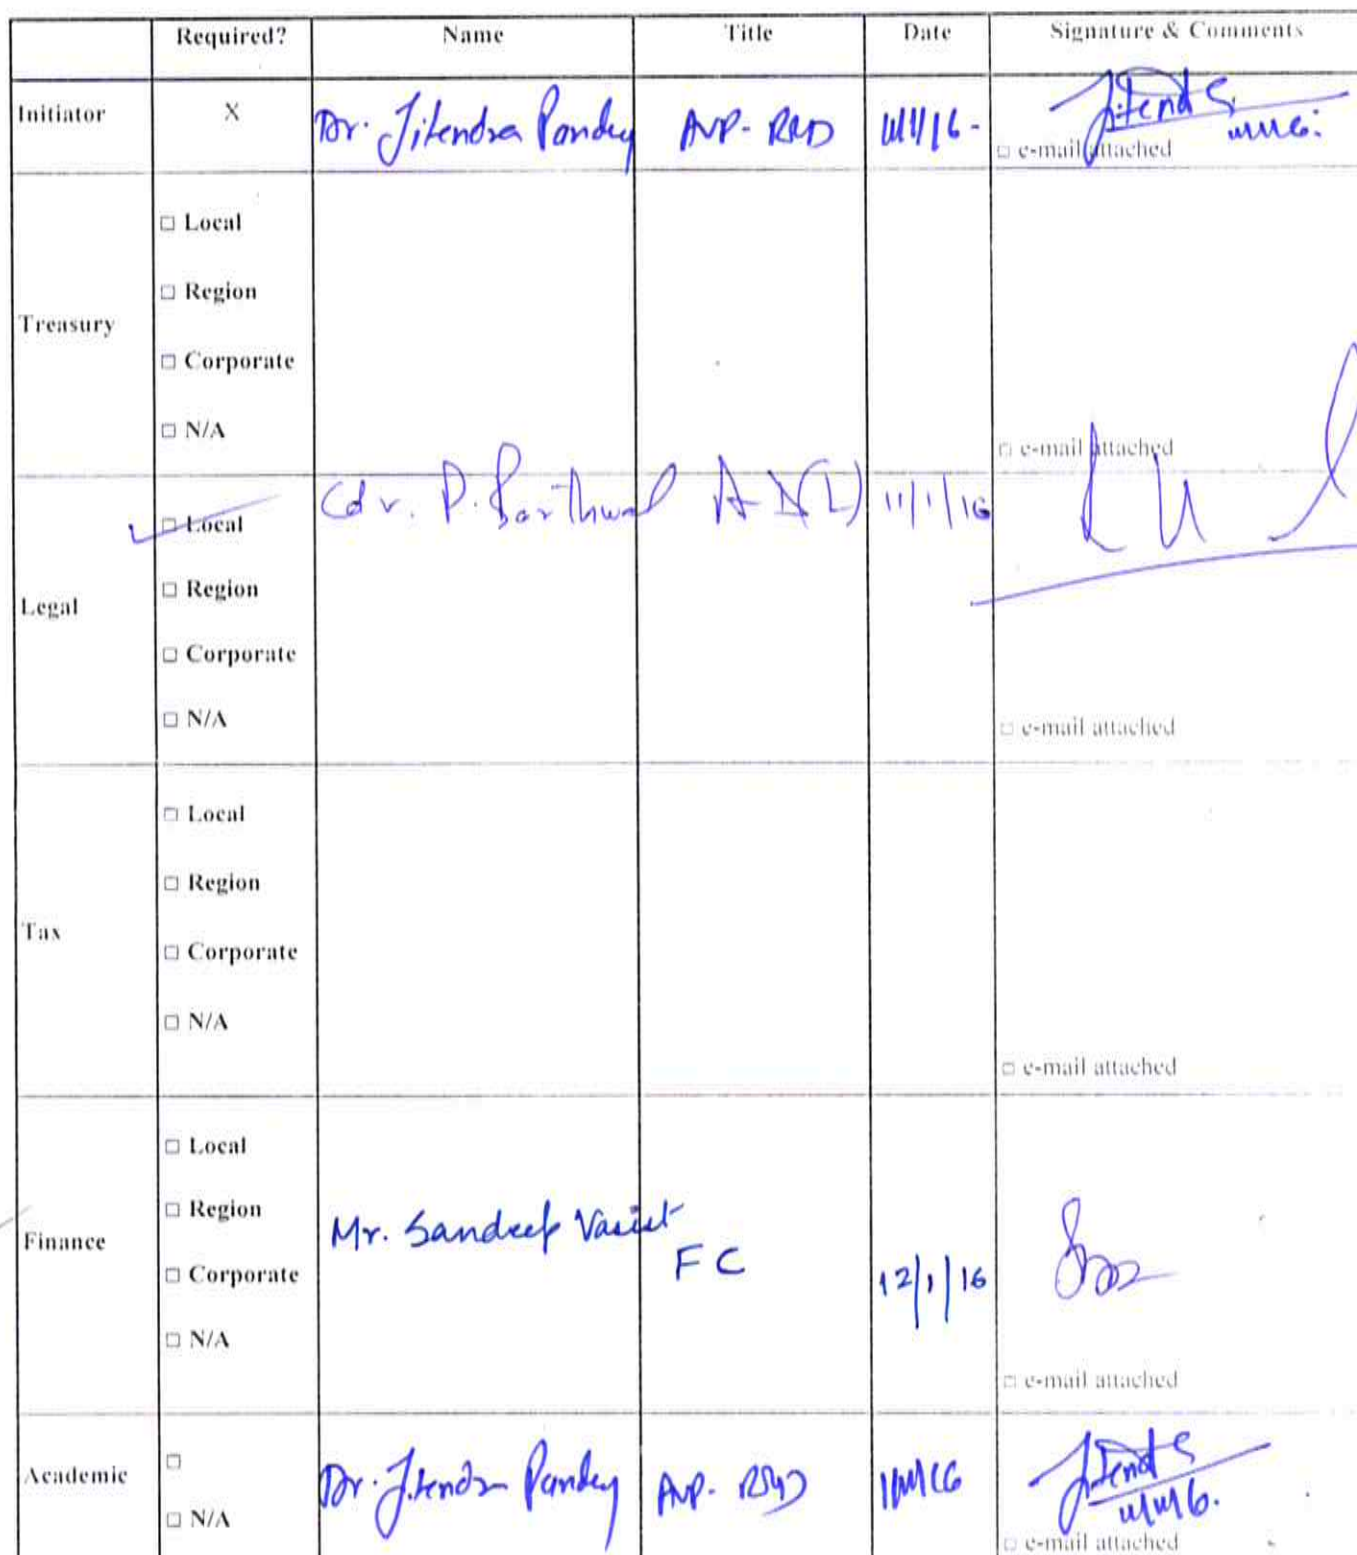 Required? Name Title Date Signature & Comments
Initiator X Dr. Jitendra Pandey AVP- R&D 11/1/16- 
11/1/16.
☐ e-mail attached
Treasury
☐ Local
☐ Region
☐ Corporate
☐ N/A
☐ e-mail attached
Legal
☐ Local Cdr. P. Barthwal 11/1/16
☐ Region
☐ Corporate
☐ N/A
☐ e-mail attached
Tax
☐ Local
☐ Region
☐ Corporate
☐ N/A
☐ e-mail attached
Finance
☐ Local
☐ Region
☐ Corporate
☐ N/A
Mr. Sandeep Vasist FC 12/1/16
☐ e-mail attached
Academic
☐
☐ N/A
Dr. Jitendra Pandey AVP- R&D 11/1/16
11/1/16.
☐ e-mail attached